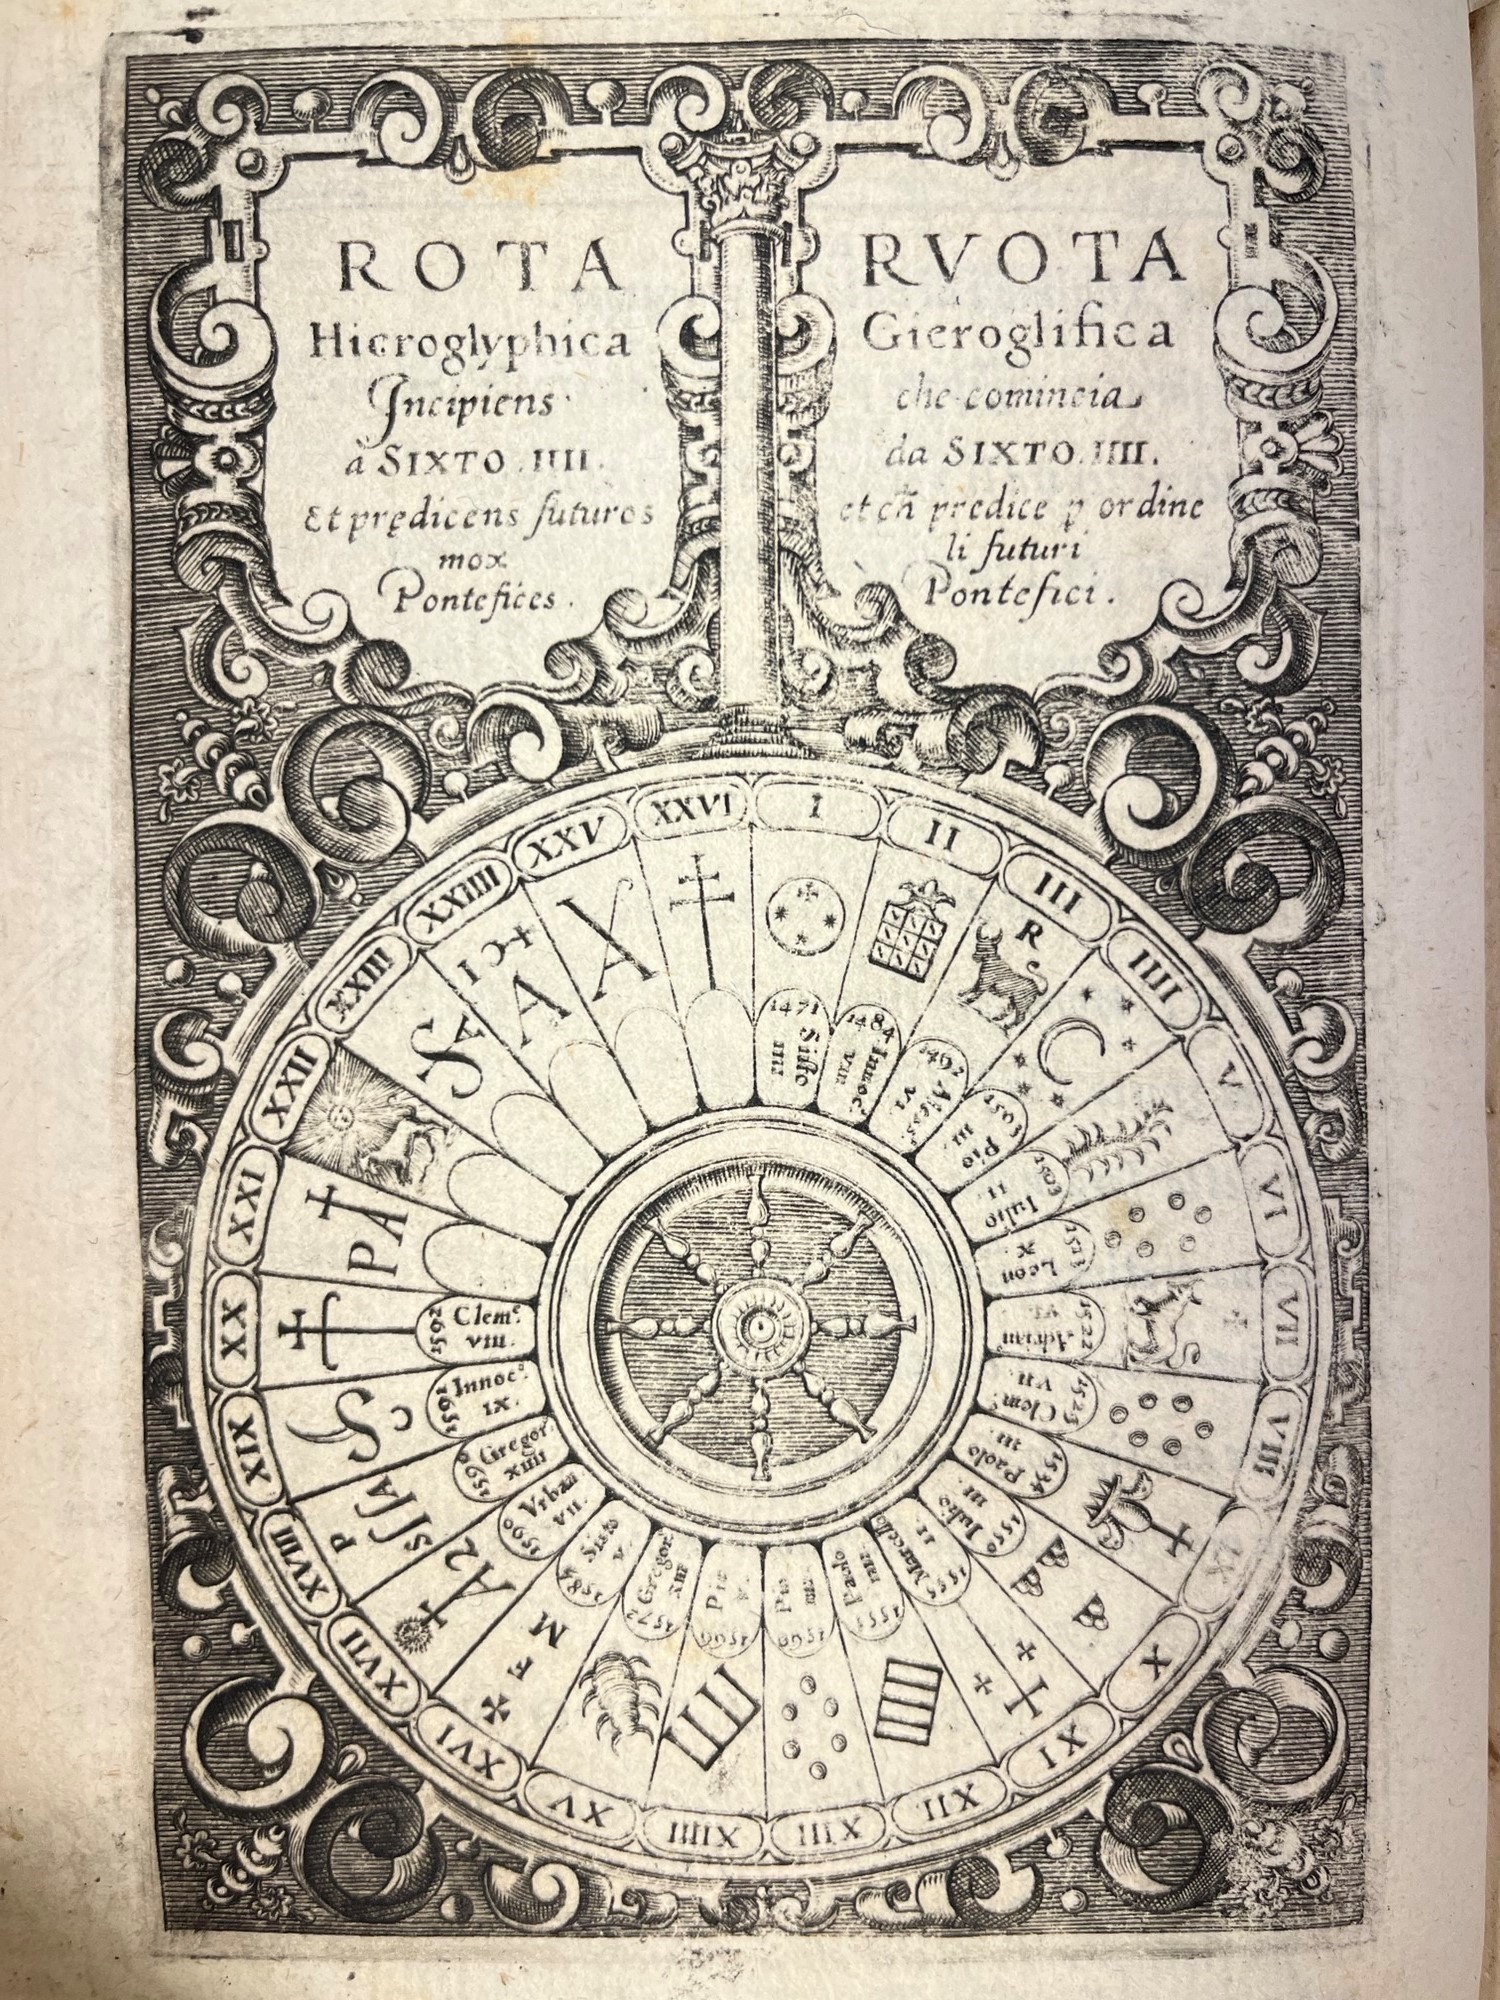 ROTA
Hieroglyphica
Incipiens
à SIXTO . IIII .
Et prędicens futuros
mox
Pontefices .
RVOTA
Gieroglifica
che comincia
da SIXTO . IIII .
et predice ordine
li futuri
Pontefici .
I
II
III
IIII
V
VI
VII
VIII
IX
X
XI
XII
XIII
XIIII
XV
XVI
XVII
XVIII
XIX
XX
XXI
XXII
XXIII
XXIIII
XXV
XXVI
R
1471
Sisto
IIII
1484
Innoc.
VIII
1492
Aless.
VI
1503
Pio
III
1503
Iulio
II
1513
Leon
X
1522
Adrian
VI.
1523
Clem.
VII
1534
Paolo
III
1550
Iulio
III
1555
Marcello
II
1555
Paolo
IIII
Pio
IIII
Pio
V.
1572
Gregor.
XIII
Sisto
V.
1590
Vrban
VII.
1590
Gregor
XIIII
Innoc.
IX.
Clem.
VIII.
F M
A
P
SSSA
PA
SA
A
A